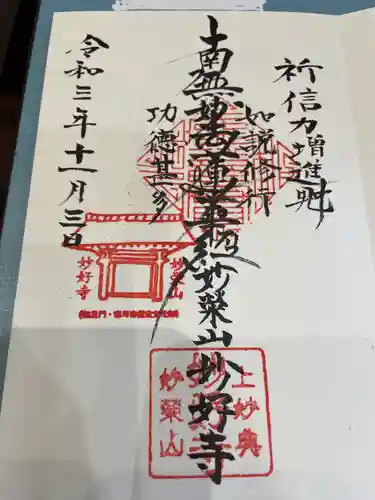 祈信力増進※
如説修行
南無妙法蓮華経
妙榮山妙好寺
功徳甚多
令和三年十一月三日
妙榮山
妙好寺
上妙典
妙好寺
妙榮山